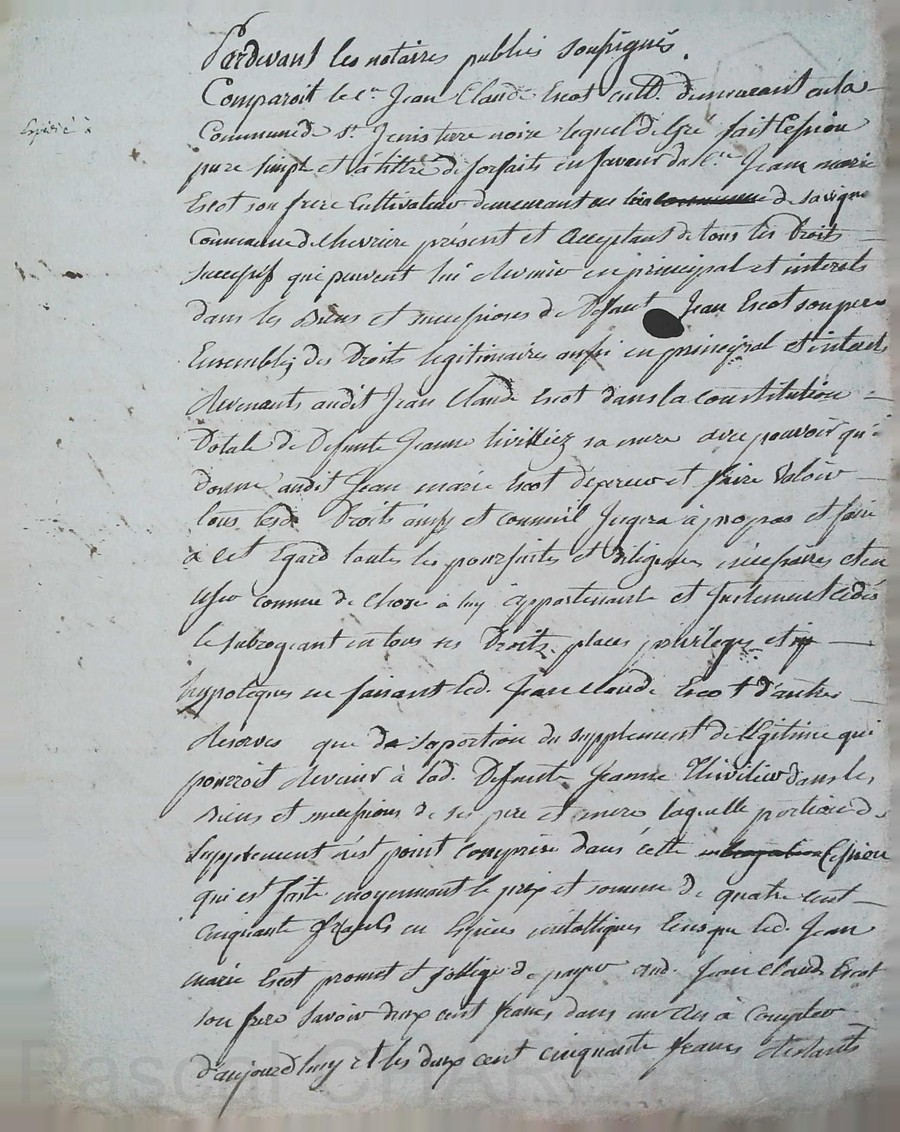 Pardevant les notaires publics soussignés
Comparoit le cn. Jean Claude Escot cult. demeurant en la
Commune de st. Jenis terre noire lequel de Gré fait Cession
pure simple et à tittre de forfaits en faveur du cn. Jean marie
Escot son frere Cultivateur demeurant de savigne
Commune de chevriere présent et acceptant de tous les Droits
successifs qui peuvent lui devenir en principal et interets
dans les Biens et successions de Defunt Jean Escot son pere
Ensembles des Droits legitimaires aussi en principal et interets
devenants audit Jean Claude Escot dans la constitution
Dotale de Defunte Jeanne sa mere avec pouvoir qu'il
donne audit Jean marie Escot d'exercer et faire valoir
tous lesd. Droits ainsy et comme il Jugera à propos et faire
a cet Egard toutes les poursuites et Diligences necessaires et en
User comme de chose à luy appartenante et justement cédée
le subrogeant en tous ses Droits places privileges et
hypoteques ne faisant led. Jean Claude Escot d'autres
reserves que de sa portion du supplement de légitime qui
pourroit devenir à lad. Defunte Jeanne Thivilier dans les
Biens et successions de ses pere et mere laquelle portion de
supplement n'est point comprise dans cette Cession
qui est faite moyennant le prix et somme de quatre cent
cinquante francs en Espèces métalliques que led. Jean
marie Escot promet et s'oblige de payer aud. Jean Claude Escot
son frere savoir deux cent francs dans un an à compter
d'aujourd'huy et les deux cent cinquante francs restants
Expédié
Pascal CHAR